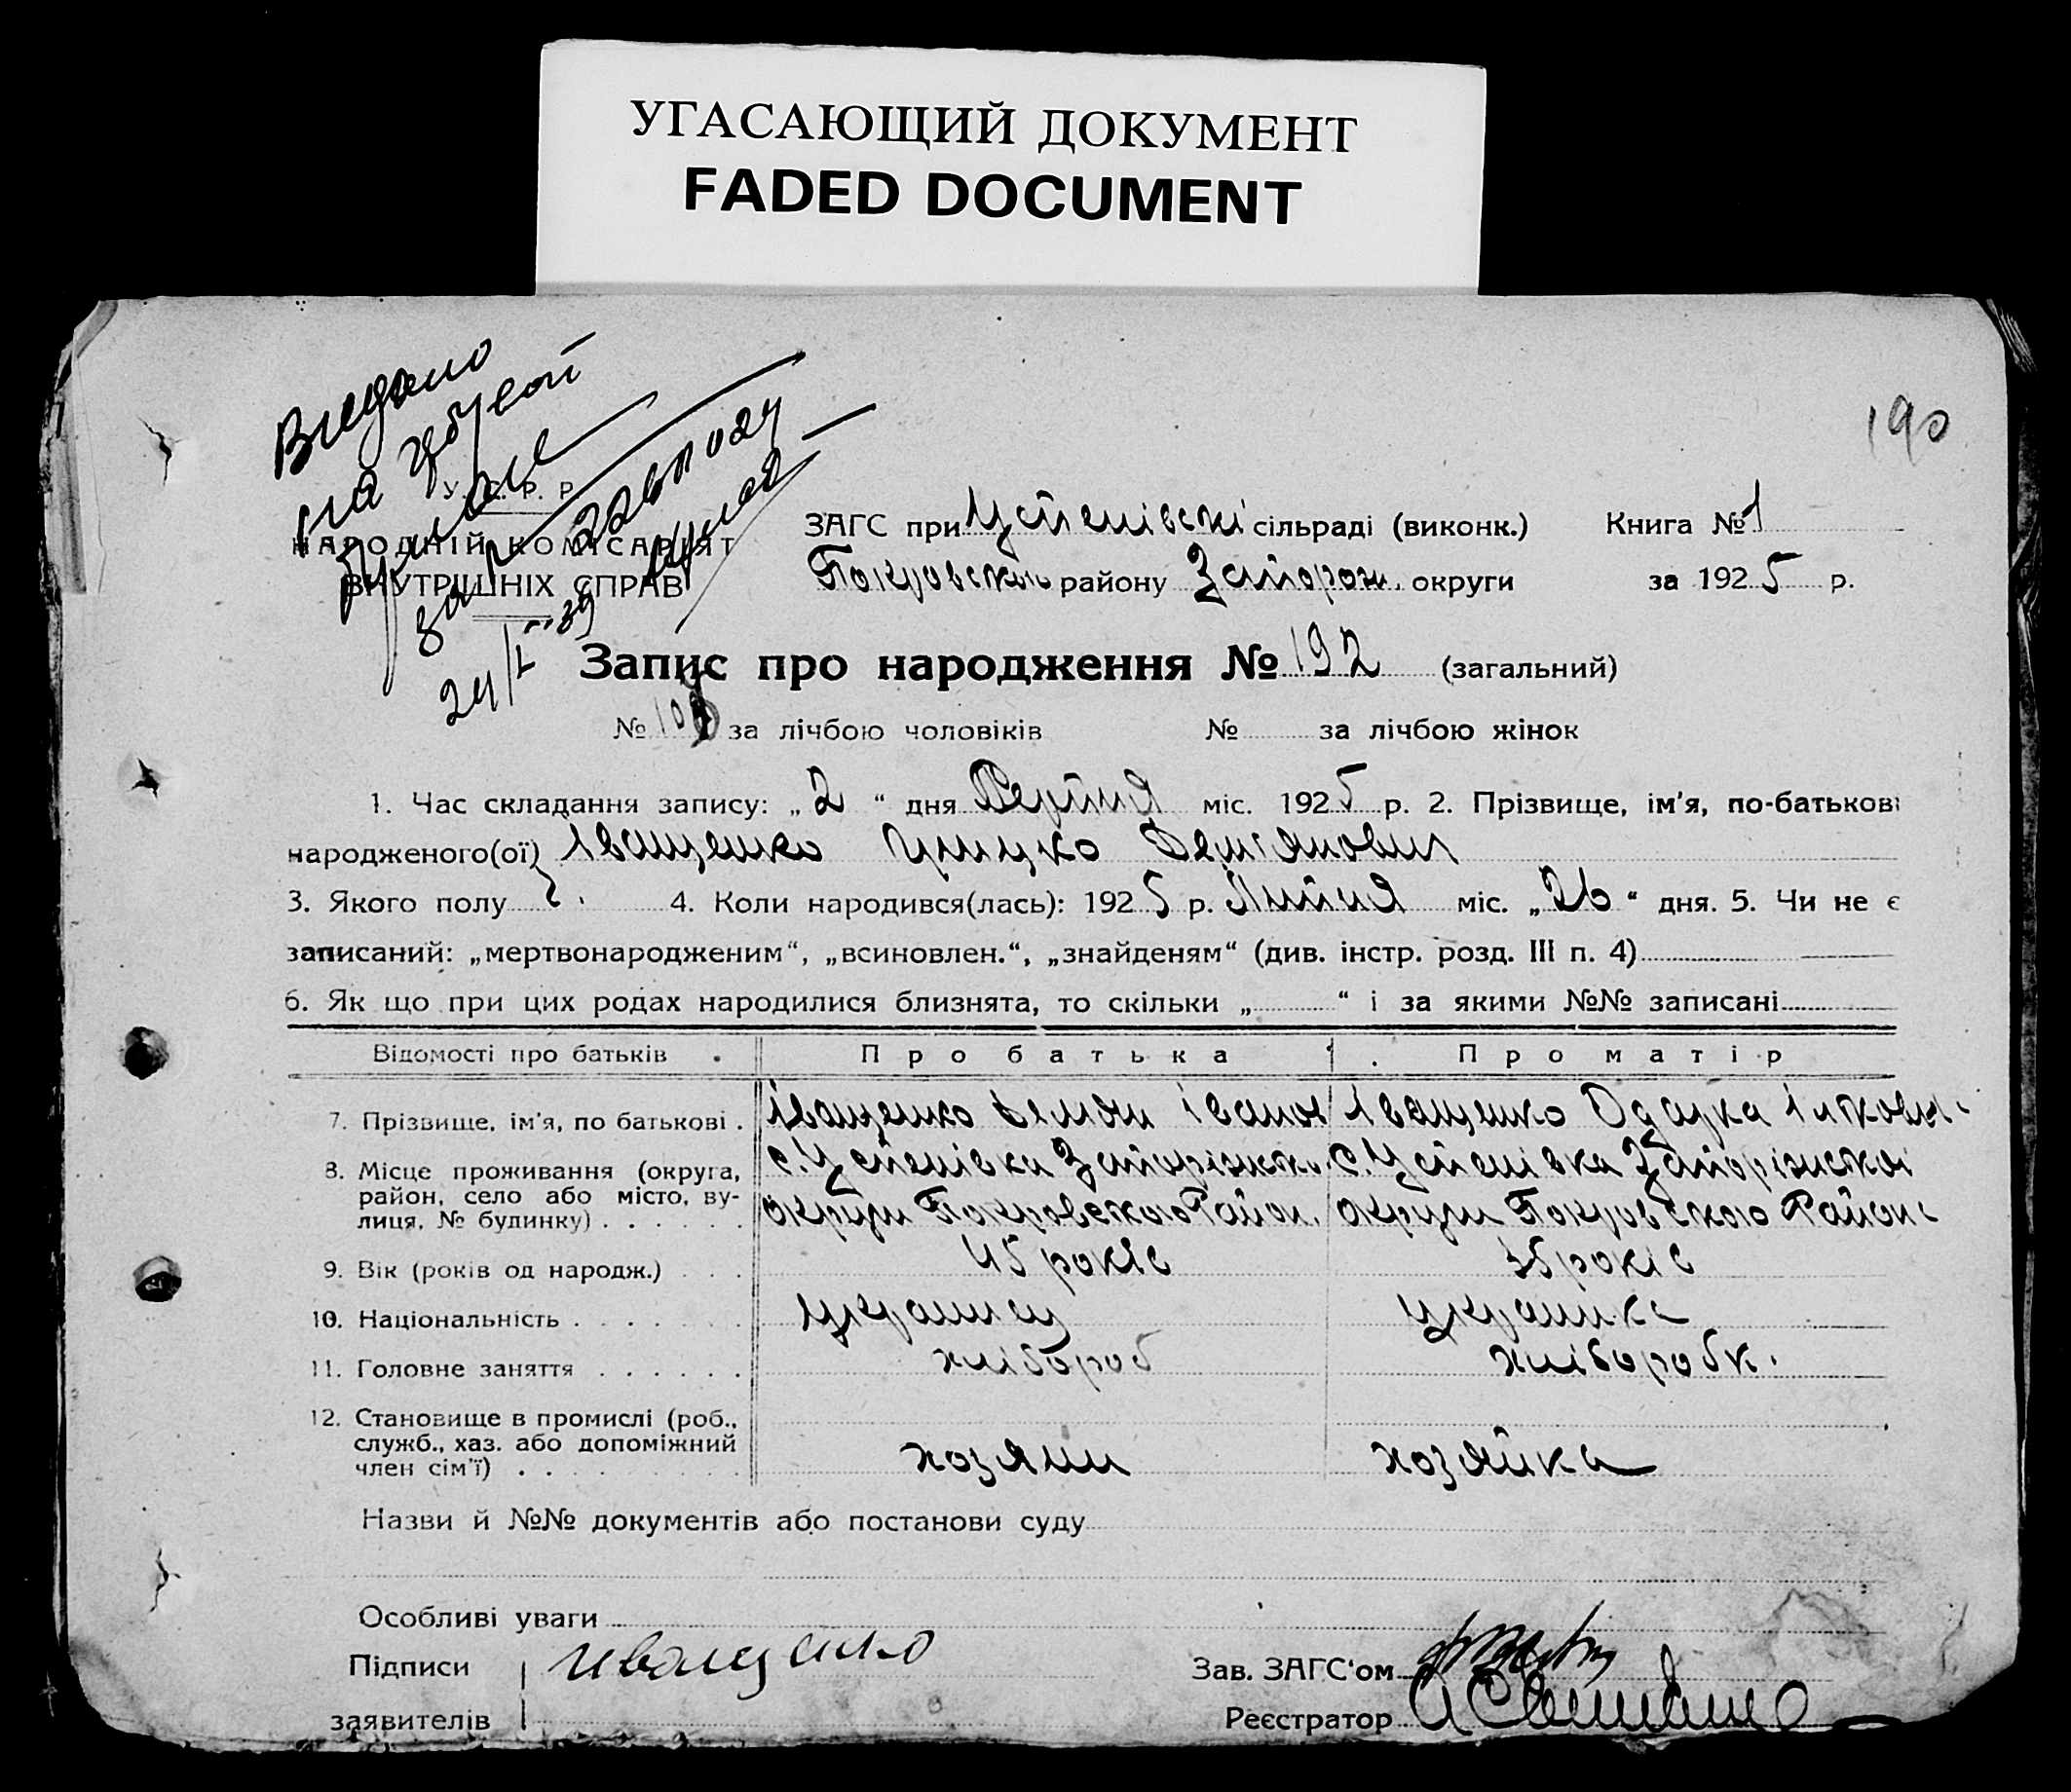 УГАСАЮЩИЙ ДОКУМЕНТ
FADED DOCUMENT
190
Видано
на
24/V 39
У. С. Р. Р.
НАРОДНІЙ КОМІСАРІЯТ
ВНУТРІШНІХ СПРАВ
ЗАГС при Успенівскі сільраді (виконк.) Книга № 1
Покровского району Запорож. округи за 1925 р.
Запис про народження № 192 (загальний)
№ за лічбою чоловіків № за лічбою жінок
1. Час складання запису: „2“ дня Серпня міс. 1925 р. 2. Прізвище, ім'я, по-батькові
народженого(ої) Іващенко Грицко Дем'янович
3. Якого полу ч. 4. Коли народився(лась): 1925 р. Липня міс. „26“ дня. 5. Чи не є
записаний: „мертвонародженим“, „всиновлен.“, „знайденям“ (див. інстр. розд. III п. 4)
6. Як що при цих родах народилися близнята, то скільки „ “ і за якими №№ записані
Відомості про батьків Про батька Про матір
7. Прізвище, ім'я, по батькові . Іващенко Демян Іванов Іващенко Одарка
8. Місце проживання (округа, с. Успенівка Запоріжск. с. Успенівка Запоріжскої
район, село або місто, ву-
лиця, № будинку) . . . . . . округи Покровского Район. округи Покровского Район
9. Вік (років од народж.) . . . 45 років 35 років
10. Національність . . . . . . . українец українка
11. Головне заняття . . . . . . хлібороб хлiборобк.
12. Становище в промислі (роб.,
служб., хаз. або допоміжний
член сім'ї) . . . . . . . . . хозяин хозяйка
Назви й №№ документів або постанови суду
Особливі уваги
Підписи Иващенко Зав. ЗАГС'ом
заявителів Реєстратор